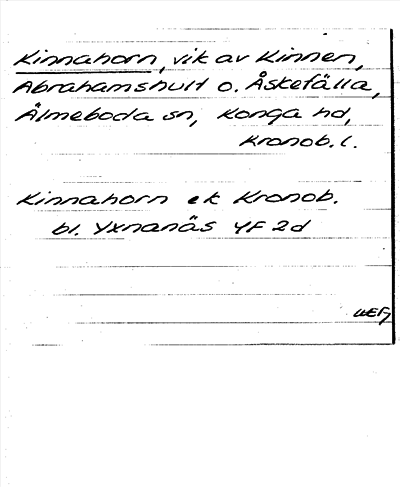 Kinnahorn, vik av Kinnen,
Abrahamshult o. Åskefälla,
Älmeboda sn, Konga hd,
Kronob. l.
Kinnahorn ek Kronob.
bl. Yxnanäs 4F 2d